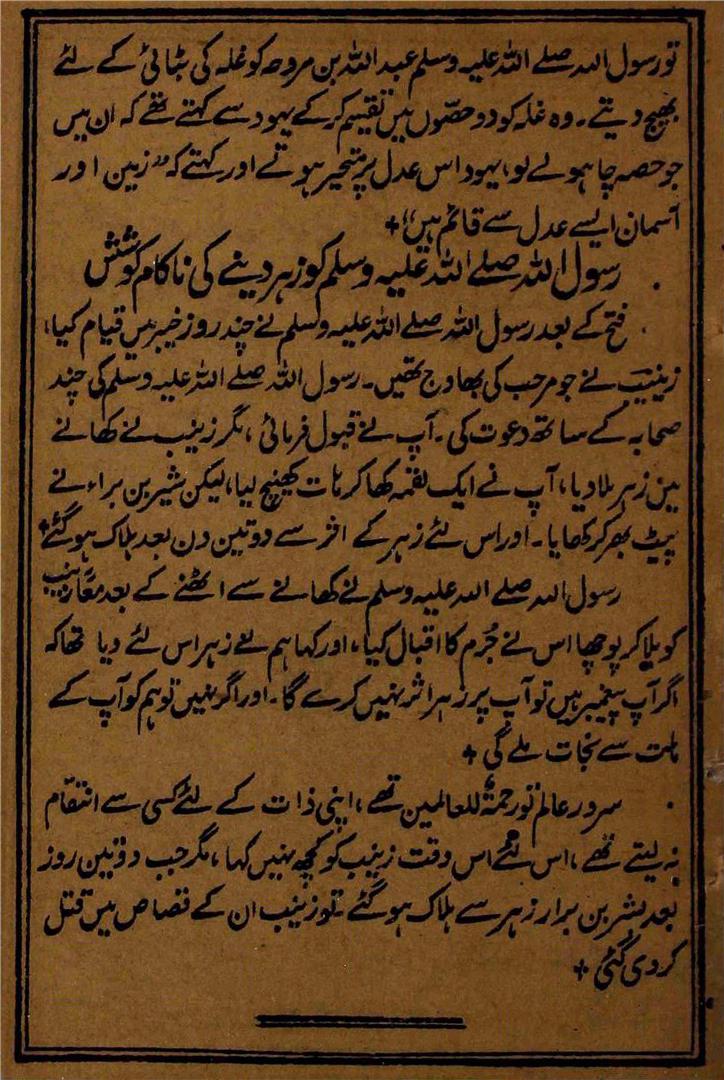 تو رسول اللہ صلے اللہ علیہ وسلم عبد اللہ بن مروحہ کو غلہ کی بٹائی کے لئے
بھیج دیتے۔ وہ غلہ کو دو حصّوں میں تقسیم کر کے یہود سے کہتے تھے کہ ان میں
جو حصہ چاہو لے لو، یہود اس عدل پر متحیر ہوتے اور کہتے کہ ”زمین اور
آسمان ایسے عدل سے قائم ہیں“ +
رسول اللہ صلے اللہ علیہ وسلم کو زہر دینے کی ناکام کوشش
فتح کے بعد رسول اللہ صلے اللہ علیہ وسلم نے چند روز خیبر میں قیام کیا،
زینب نے جو مرحب کی بھاوج تھیں۔ رسول اللہ صلے اللہ علیہ وسلم کی چند
صحابہ کے ساتھ دعوت کی۔ آپ نے قبول فرمائی، مگر زینب نے کھانے
میں زہر ملا دیا، آپ نے ایک لقمہ کھا کر ہات کھینچ لیا، لیکن شیر بن براء نے
پیٹ بھر کر کھایا۔ اور اس لئے زہر کے اثر سے دو تین دن بعد ہلاک ہو گئے +
رسول اللہ صلے اللہ علیہ وسلم نے کھانے سے اٹھنے کے بعد معاً زینب
کو بلا کر پوچھا اس نے جُرم کا اقبال کیا، اور کہا ہم نے زہر اس لئے دیا تھا کہ
اگر آپ پیغمبر ہیں تو آپ پر زہر اثر نہیں کرے گا۔ اور اگر نہیں تو ہم کو آپ کے
ہات سے نجات ملے گی +
سرور عالم تو رحمۃٌ للعالمین تھے، اپنی ذات کے لئے کسی سے انتقام
نہ لیتے تھے، اس لئے اس وقت زینب کو کچھ نہیں کہا، مگر جب دو تین روز
بعد بشر بن برار زہر سے ہلاک ہو گئے۔ تو زینب ان کے قصاص میں قتل
کر دی گئی +